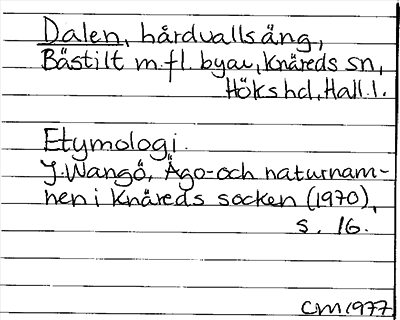 Dalen, hårdvallsäng,
Bästilt m.fl. byar, Knäreds sn,
Höks hd, Hall. l.
Etymologi.
J. Wangö, Ägo- och naturnam-
nen i Knäreds socken (1970),
s. 16.
CM 1977